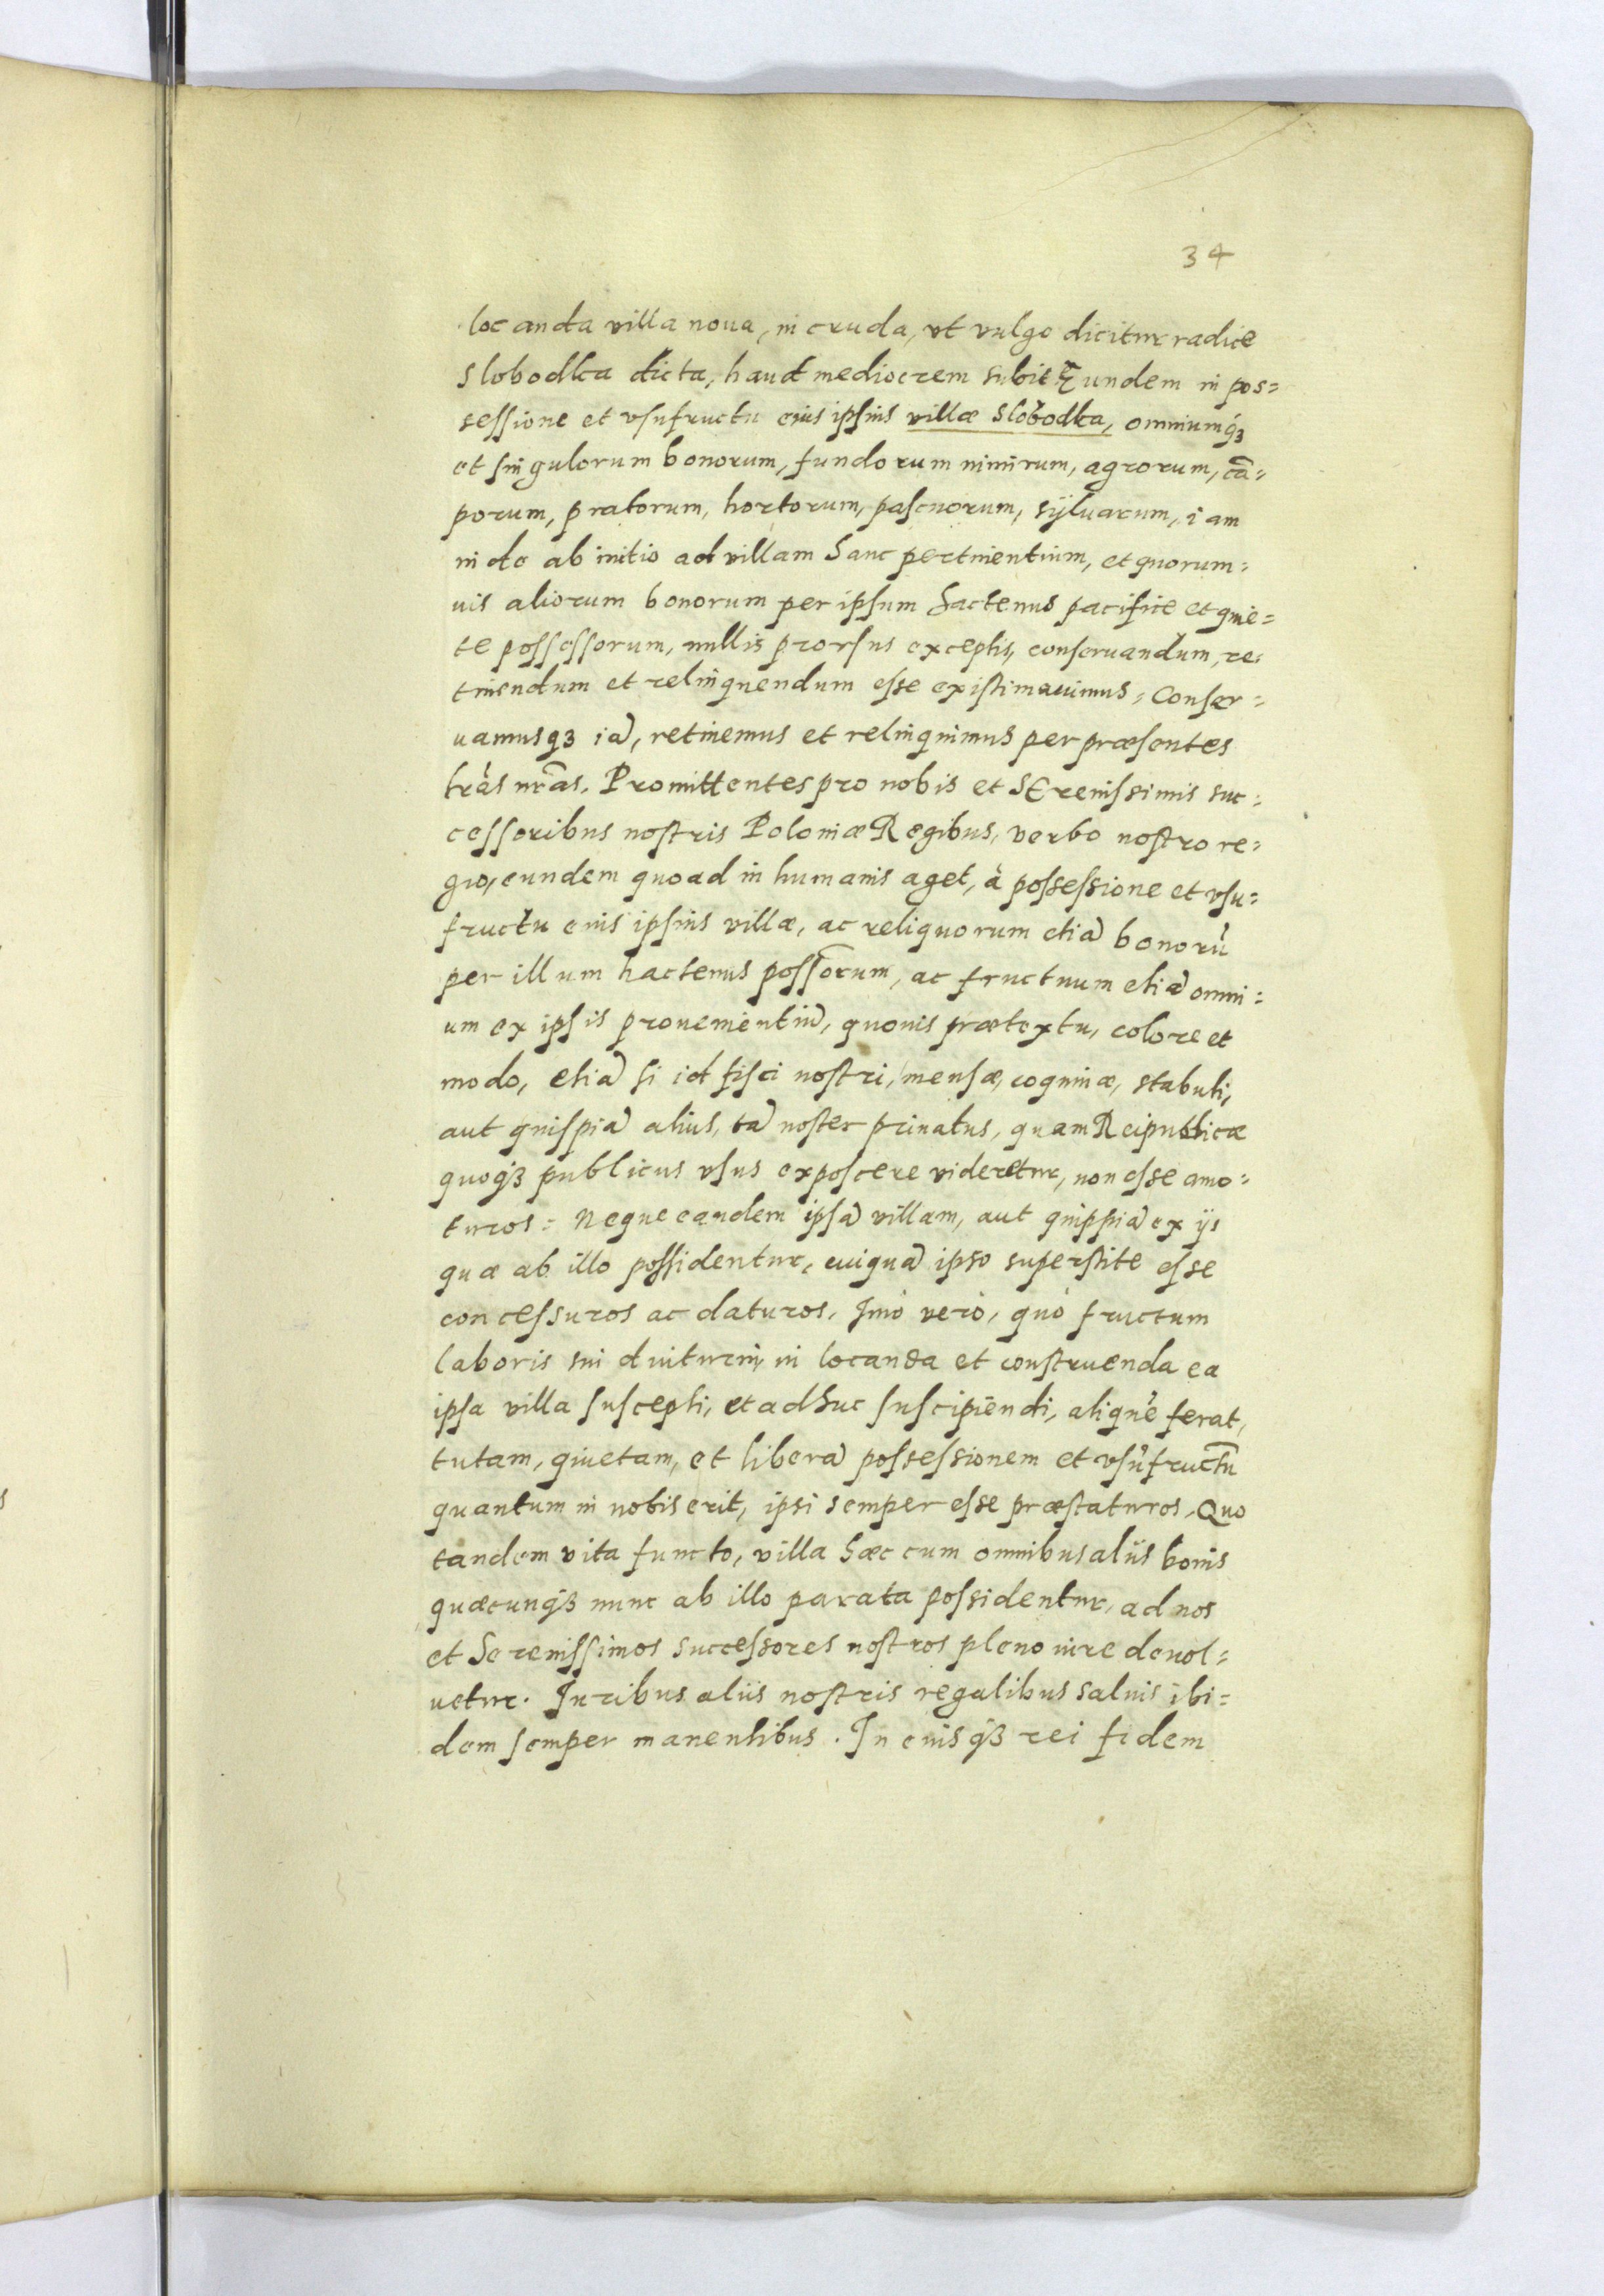 34
locanda villa noua, in cruda, vt vulgo dicitur radice
Slobodka dicta, haud mediocrem subit Eundem in pos=
sessione et vsufructu eius ipsius villæ Slobodka, omniumq3
et singulorum bonorum, fundorum nimirum, agrorum, cã=
porum, pratorum, hortorum, pascuorum, syluarum, iam
inde ab initio ad villam hanc pertinentium, et quorum=
uis aliorum bonorum per ipsum hactenus pacifice et quie=
te possessorum, nullis prorsus exceptis, conseruandum, re=
tinendum et relinquendum esse existimauimus. Conser=
uamusq3 iã, retinemus et relinquimus per præsentes
lrãs nrãs. Promittentes pro nobis et SErenissimis suc=
cessoribus nostris Poloniæ Regibus, verbo nostro re=
gio, eundem quoad in humanis aget, à possessione et vsu=
fructu eius ipsius villæ, ac reliquorum etiã bonorũ
per illum hactenus possorum, ac fructuum etiã omni=
um ex ipsis prouenientiũ, quouis prætextu, colore et
modo, etiã si id fisci nostri, mensæ, coquinæ, stabuli,
aut quispiã alius, tã noster priuatus, quam Reipublicæ
quoq3 publicus vsus exposcere videretur, non esse amo=
turos: Neque eandem ipsã villam, aut quippiã ex ijs
quæ ab illo possidentur, cuiquã ipso superstite esse
concessuros ac daturos. Imò verò, quò fructum
laboris sui diuturni, in locanda et construenda ea
ipsa villa suscepti, et adhuc suscipiendi, aliquẽ ferat,
tutam, quietam, et liberã possessionem et vsũfructũ
quantum in nobis erit, ipsi semper esse præstaturos. Quo
tandem vita functo, villa hæc cum omnibus aliis bonis
quæcunq3 nunc ab illo parata possidentur, ad nos
et Serenissimos successores nostros pleno iure deuol=
uetur. Iuribus aliis nostris regalibus saluis ibi=
dem semper manentibus. In cuiusq3 rei fidem